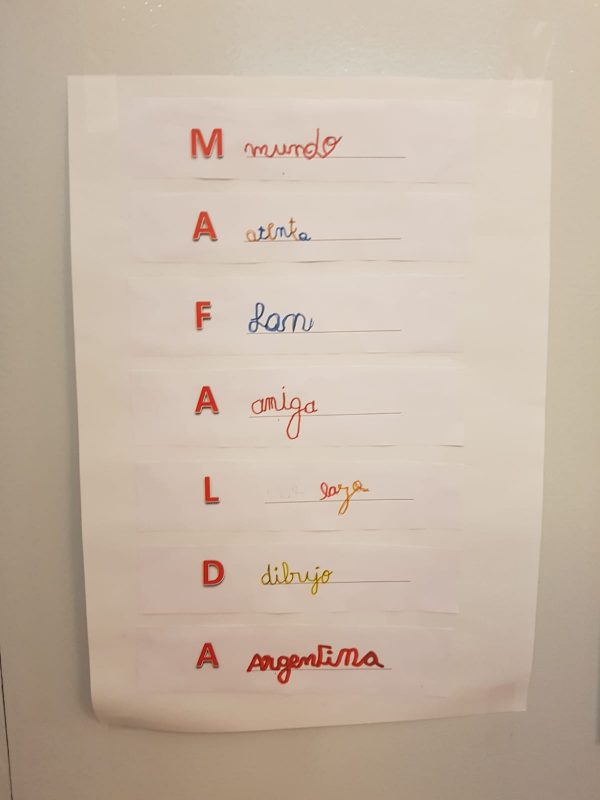 M mundo
A atenta
F Fan
A amiga
L lazo
D dibujo
A Argentina